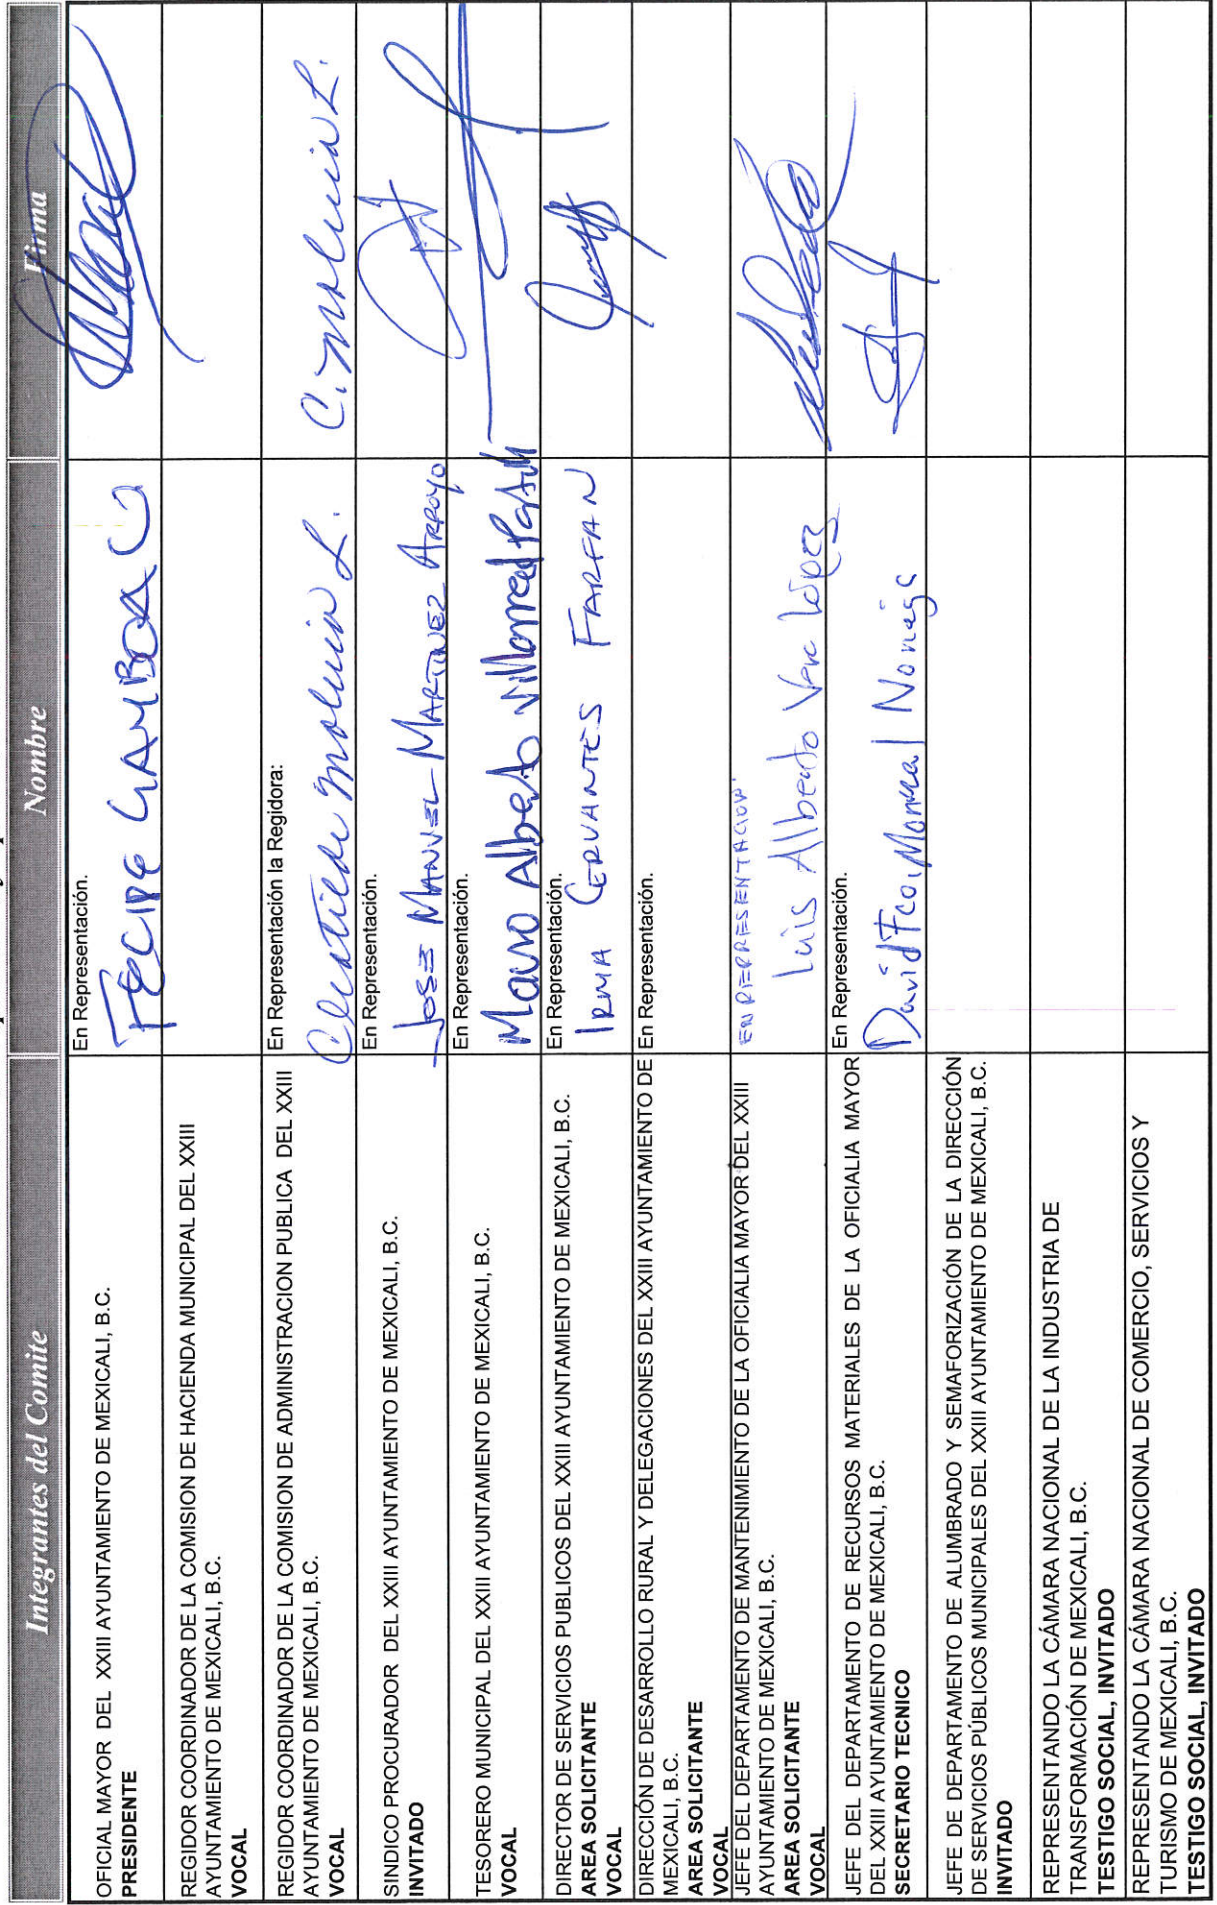 Integrantes del Comite Nombre Firma
OFICIAL MAYOR DEL XXIII AYUNTAMIENTO DE MEXICALI, B.C.
PRESIDENTE
En Representación.
FELIPE GAMBOA
REGIDOR COORDINADOR DE LA COMISION DE HACIENDA MUNICIPAL DEL XXIII
AYUNTAMIENTO DE MEXICALI, B.C.
VOCAL
REGIDOR COORDINADOR DE LA COMISION DE ADMINISTRACION PUBLICA DEL XXIII
AYUNTAMIENTO DE MEXICALI, B.C.
VOCAL
En Representación la Regidora:
Clotilde Molina L.
C. Molina L.
SINDICO PROCURADOR DEL XXIII AYUNTAMIENTO DE MEXICALI, B.C.
INVITADO
En Representación.
JOSE MANUEL MARTINEZ ARROYO
TESORERO MUNICIPAL DEL XXIII AYUNTAMIENTO DE MEXICALI, B.C.
VOCAL
En Representación.
Mauro Alberto Villarreal
DIRECTOR DE SERVICIOS PUBLICOS DEL XXIII AYUNTAMIENTO DE MEXICALI, B.C.
AREA SOLICITANTE
VOCAL
En Representación.
IRMA CERVANTES FARFAN
DIRECCIÓN DE DESARROLLO RURAL Y DELEGACIONES DEL XXIII AYUNTAMIENTO DE
MEXICALI, B.C.
AREA SOLICITANTE
VOCAL
En Representación.
JEFE DEL DEPARTAMENTO DE MANTENIMIENTO DE LA OFICIALIA MAYOR DEL XXIII
AYUNTAMIENTO DE MEXICALI, B.C.
AREA SOLICITANTE
VOCAL
EN REPRESENTACION
Luis Alberto Vera López
JEFE DEL DEPARTAMENTO DE RECURSOS MATERIALES DE LA OFICIALIA MAYOR
DEL XXIII AYUNTAMIENTO DE MEXICALI, B.C.
SECRETARIO TECNICO
En Representación.
David Fco. Monreal Noriega
JEFE DE DEPARTAMENTO DE ALUMBRADO Y SEMAFORIZACIÓN DE LA DIRECCIÓN
DE SERVICIOS PÚBLICOS MUNICIPALES DEL XXIII AYUNTAMIENTO DE MEXICALI, B.C.
INVITADO
REPRESENTANDO LA CÁMARA NACIONAL DE LA INDUSTRIA DE
TRANSFORMACIÓN DE MEXICALI, B.C.
TESTIGO SOCIAL, INVITADO
REPRESENTANDO LA CÁMARA NACIONAL DE COMERCIO, SERVICIOS Y
TURISMO DE MEXICALI, B.C.
TESTIGO SOCIAL, INVITADO